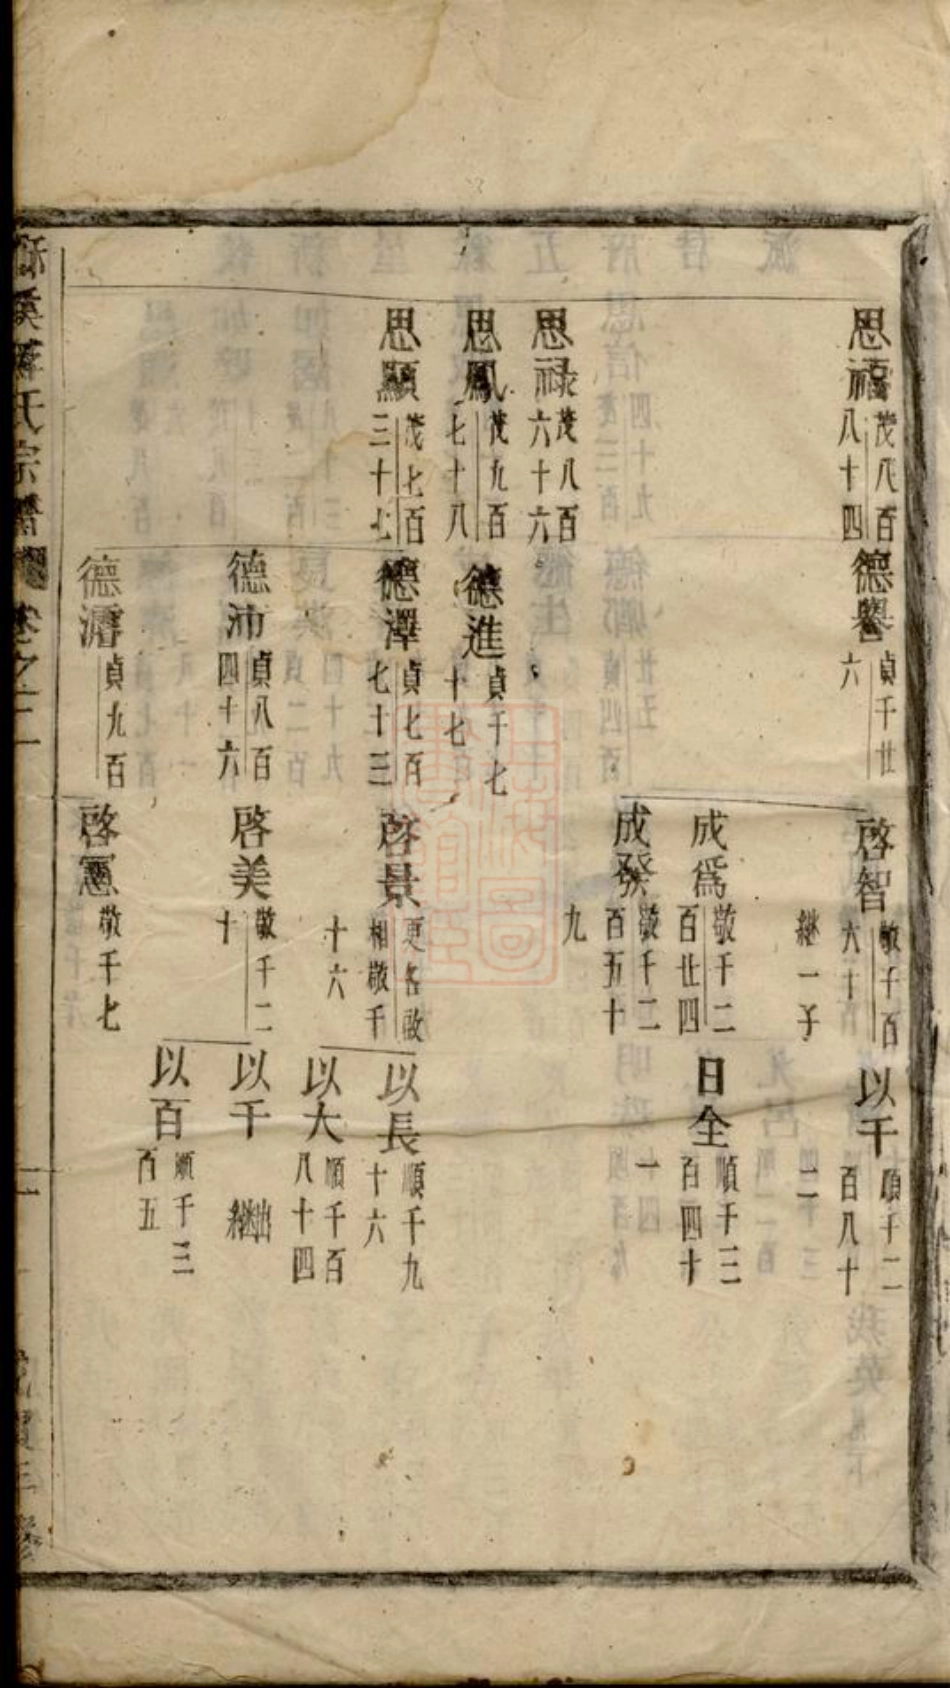 思福 茂八百八十四
德譽 貞千廿六
啓智 敬千百六十
繼一子
以千 順千二百八十二
成爲 敬千二百廿四
日全 順千三百四十一
成發 敬千二百五十九
思祿 茂八百六十六
思鳳 茂九百七十八
德進 貞千七十七
思顯 茂七百三十七
德澤 貞七百七十三
啓景 更名啟相敬千十六
以長 順千九十六
以大 順千百八十四
德沛 貞八百四十六
啓美 敬千二十
以千 出繼
以百 順千三百五
德濬 貞九百
啓憲 敬千七
氏宗譜 卷之二
二